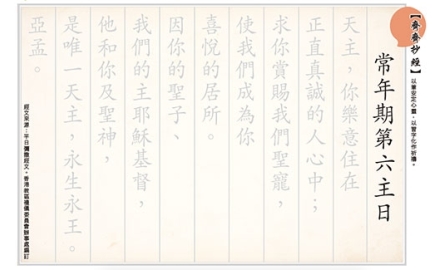 【齊齊抄經】
以筆安定心靈，以習字化作祈禱。
常年期第六主日
天主，你樂意住在
正直真誠的人心中；
求你賞賜我們聖寵，
使我們成為你
喜悅的居所。
因你的聖子、
我們的主耶穌基督，
他和你及聖神，
是唯一天主，永生永王。
亞孟。
經文來源：平日彌撒經文，香港教區禮儀委員會辦事處編訂